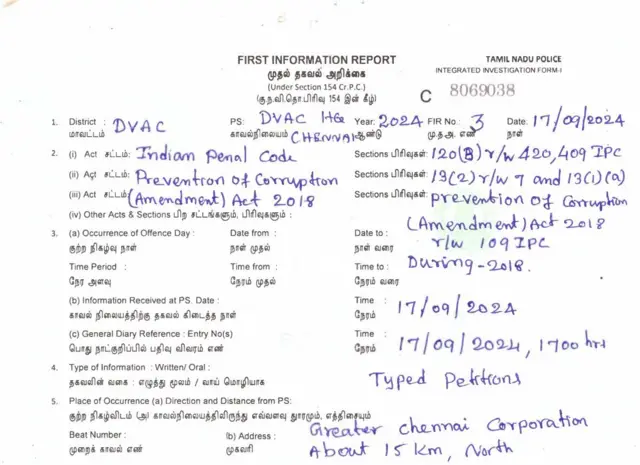 FIRST INFORMATION REPORT
TAMIL NADU POLICE
முதல் தகவல் அறிக்கை
INTEGRATED INVESTIGATION FORM-I
(Under Section 154 Cr.P.C.)
(கு.ந.வி.தொ.பிரிவு 154 இன் கீழ்)
C 8069038
1. District : DVAC PS: DVAC HQ Year: 2024 FIR No.: 3 Date: 17/09/2024
மாவட்டம் காவல்நிலையம் CHENNAI ஆண்டு மு.த.அ. எண் நாள்
2. (i) Act சட்டம்: Indian Penal Code Sections பிரிவுகள்: 120(B) r/w 420, 409 IPC
(ii) Act சட்டம்: Prevention of Corruption Sections பிரிவுகள்: 13(2) r/w 7 and 13(1)(a)
(iii) Act சட்டம்: (Amendment) Act 2018 Sections பிரிவுகள்: prevention of Corruption
(iv) Other Acts & Sections பிற சட்டங்களும், பிரிவுகளும் : (Amendment) Act 2018
3. (a) Occurrence of Offence Day : Date from : Date to : r/w 109 IPC
குற்ற நிகழ்வு நாள் நாள் முதல் நாள் வரை
Time Period : Time from : Time to : During - 2018.
நேர அளவு நேரம் முதல் நேரம் வரை
(b) Information Received at PS. Date : Time : 17/09/2024
காவல் நிலையத்திற்கு தகவல் கிடைத்த நாள் நேரம்
(c) General Diary Reference : Entry No(s) Time :
பொது நாட்குறிப்பில் பதிவு விவரம் எண் நேரம் 17/09/2024, 1700 hrs
4. Type of Information : Written/ Oral :
தகவலின் வகை : எழுத்து மூலம் / வாய் மொழியாக Typed Petitions
5. Place of Occurrence (a) Direction and Distance from PS:
குற்ற நிகழ்விடம் (அ) காவல்நிலையத்திலிருந்து எவ்வளவு தூரமும், எத்திசையும்
Beat Number : (b) Address : Greater Chennai Corporation
முறைக் காவல் எண் முகவரி About 15 Km, North